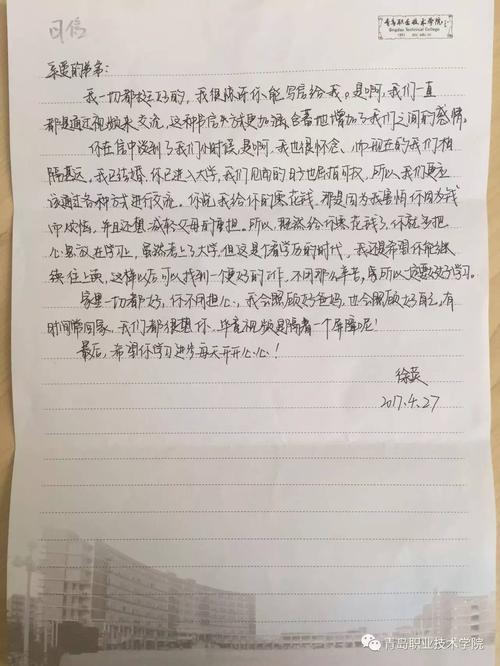 青岛职业技术学院
Qingdao Technical College
亲爱的弟弟:
我一切都挺好的,我很惊讶你能写信给我。是啊,我们一直
都是通过视频来交流,这种书信方式更加温馨也增加了我们之间的感情。
你在信中谈到了我们小时候,是啊,我也很怀念,而现在的我们相
隔甚远,我已结婚,你已进入大学,我们见面的日子也屈指可数,所以,我们更应
该通过各种方式进行交流,你说我给你的零花钱,那是因为我害怕你因为钱
而烦恼,并且还想减轻父母的负担。所以,既然给你零花钱了,你就多把
心思放在学习上,虽然考上了大学,但这是个看学历的时代,我还是希望你能继
续往上读,这样以后可以找到一个更好的工作,不用那么辛苦,所以一定要好好学习。
家里一切都好,你不用担心,我会照顾好爸妈,也会照顾好自己,有
时间常回家,我们都很想你,毕竟视频是隔着一个屏障呢!
最后,希望你学习进步每天开开心心!
徐英
2017.4.27
青岛职业技术学院